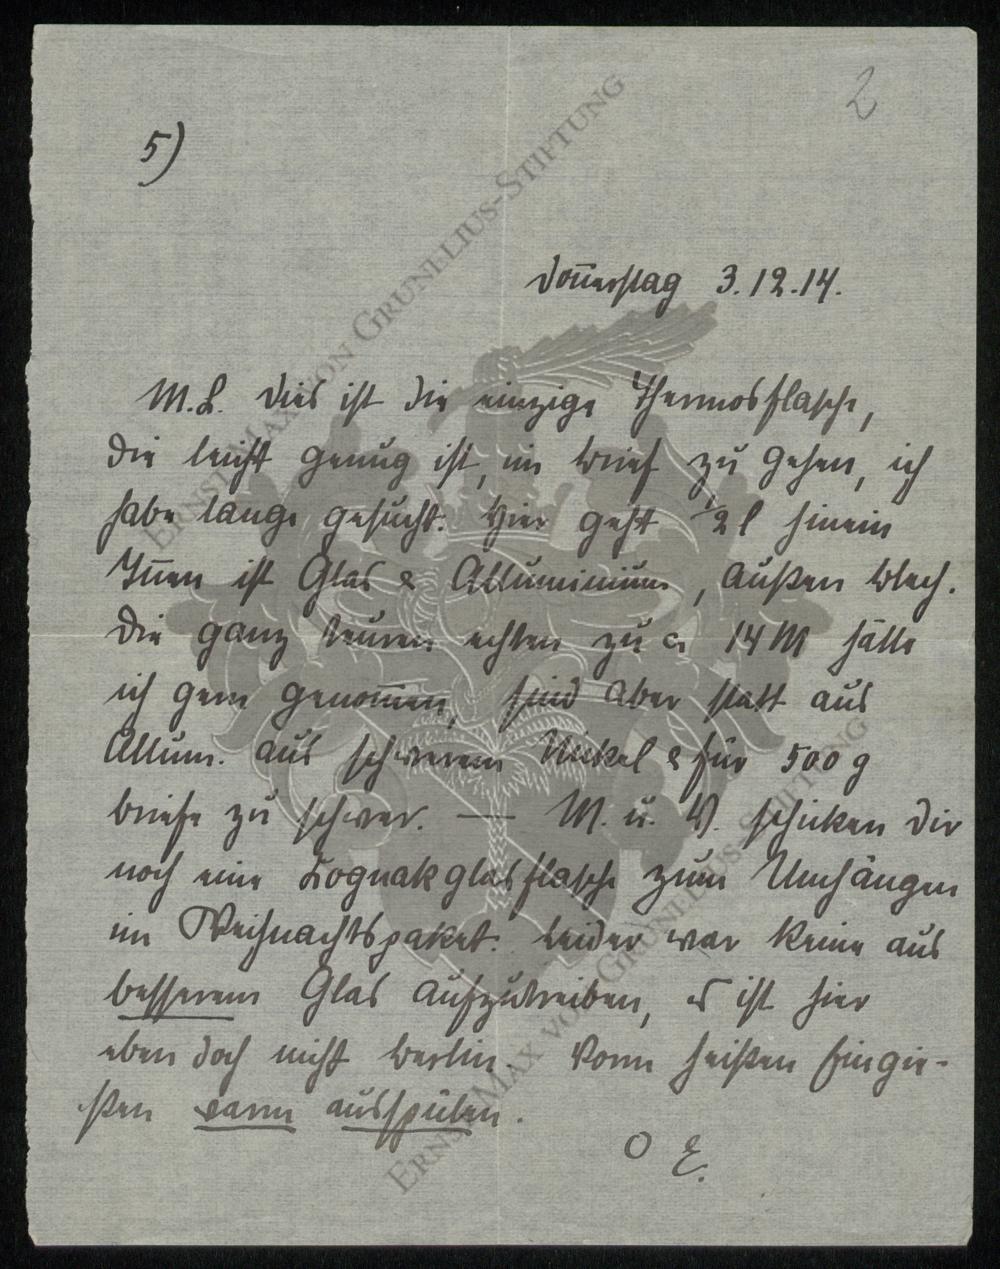 2
5)
Donnerstag 3.12.14.
M. L. Dies ist die einzige Thermosflasche,
die leicht genug ist, im Brief zu gehen, ich
habe lange gesucht. Hier geht ½ l hinein
Innen ist Glas & Alluminium, außen Blech.
Die ganz teuren echten zu ca 14 M hätte
ich gern genommen, sind aber statt aus
Allum. aus schwerem Nickel & für 500 g
Briefe zu schwer. — M. u. V. schicken Dir
noch eine Kognakglasflasche zum Umhängen
im Weihnachtspaket. Leider war keine aus
besserem Glas aufzutreiben, es ist hier
eben doch nicht Berlin. Vorm heißen Eingie-
ßen warm ausspülen.
O E.
ERNST MAX VON GRUNELIUS-STIFTUNG
ERNST MAX VON GRUNELIUS-STIFTUNG